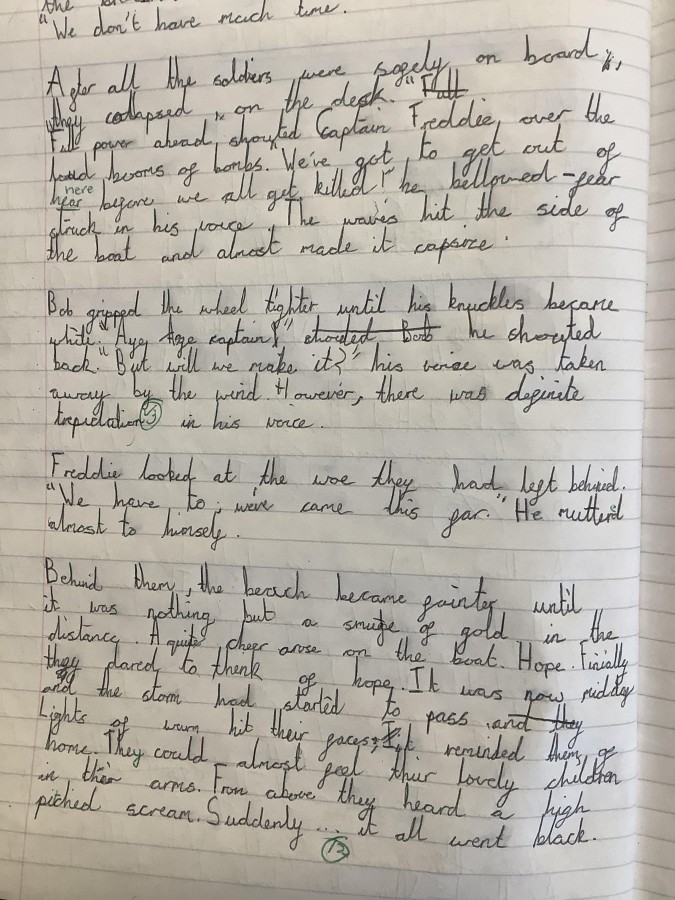 the
"We don't have much time.
After all the soldiers were safely on board,
they collapsed on the desk. "Full
Full power ahead, shouted Captain Freddie, over the
loud booms of bombs. "We've got to get out of
here
hear before we all get killed!" he bellowed - fear
struck in his voice. The waves hit the side of
the boat and almost made it capsize.
Bob gripped the wheel tighter until his knuckles became
white. "Aye, Aye captain!" shouted Bob he shouted
back. "But will we make it?" his voice was taken
away by the wind. However, there was definite
trepidation in his voice.
Freddie looked at the woe they had left behind.
"We have to; we've came this far." He mutterd
almost to himself.
Behind them, the beach became fainter until
it was nothing but a smudge of gold in the
distance. A quite cheer arose on the boat. Hope. Finially
they dared to thenk of hope. It was now midday
and the storm had started to pass and they
Lights of warm hit their faces; It reminded them of
home. They could almost feel their lovely children
in their arms. From above they heard a high
pitched scream. Suddenly... it all went black.
12